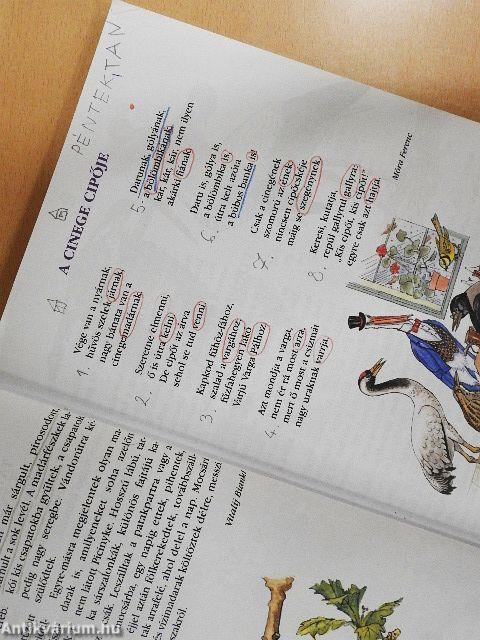 PÉNTEK,TAN
A CINEGE CIPŐJE
1. Vége van a nyárnak,
hűvös szelek járnak,
nagy bánata van a
cinegemadárnak.
2. Szeretne elmenni,
ő is útra kelni.
De cipőt az árva
sehol se tud venni.
3. Kapkod fűhöz-fához,
szalad a vargához,
fűzfahegyen lakó
Varjú Varga Pálhoz.
4. Azt mondja a varga,
nem ér rá most arra,
mert ő most a csizmát
nagy uraknak varrja.
5. Darunak, gólyának,
a bölömbikának,
kár, kár, kár, nem ilyen
akárki fiának.
6. Daru is, gólya is,
a bölömbika is,
útra kelt azóta
a búbos banka is.
7. Csak a cinegének
szomorú az ének:
nincsen cipőcskéje
máig se szegénynek.
8. Keresi, kutatja,
repül gallyrul gallyra:
„Kis cipőt, kis cipőt!”
egyre csak azt hajtja.
Móra Ferenc
már sárgult, pirosodott,
a sok levél. A madárfészkek la-
kói kis csapatokba gyűltek, a csapatok
pedig nagy seregbe. Vándorútra ké-
szülődtek.
Egyre-másra megjelentek olyan ma-
darak is, amilyeneket soha azelőtt
nem látott Picinyke. Hosszú lábú, tar-
ka sárszalonkák, különös fajtájú ka-
csák. Leszálltak a parakpartra vagy a
mocsárba, egy napig ettek, pihentek,
éjjel aztán fölkerekedtek, továbbszáll-
tak arrafelé, ahol delel a nap. Mocsári
és vízimadarak költöztek délre, messzi
Vitalij Bianki
Antikvárium.hu